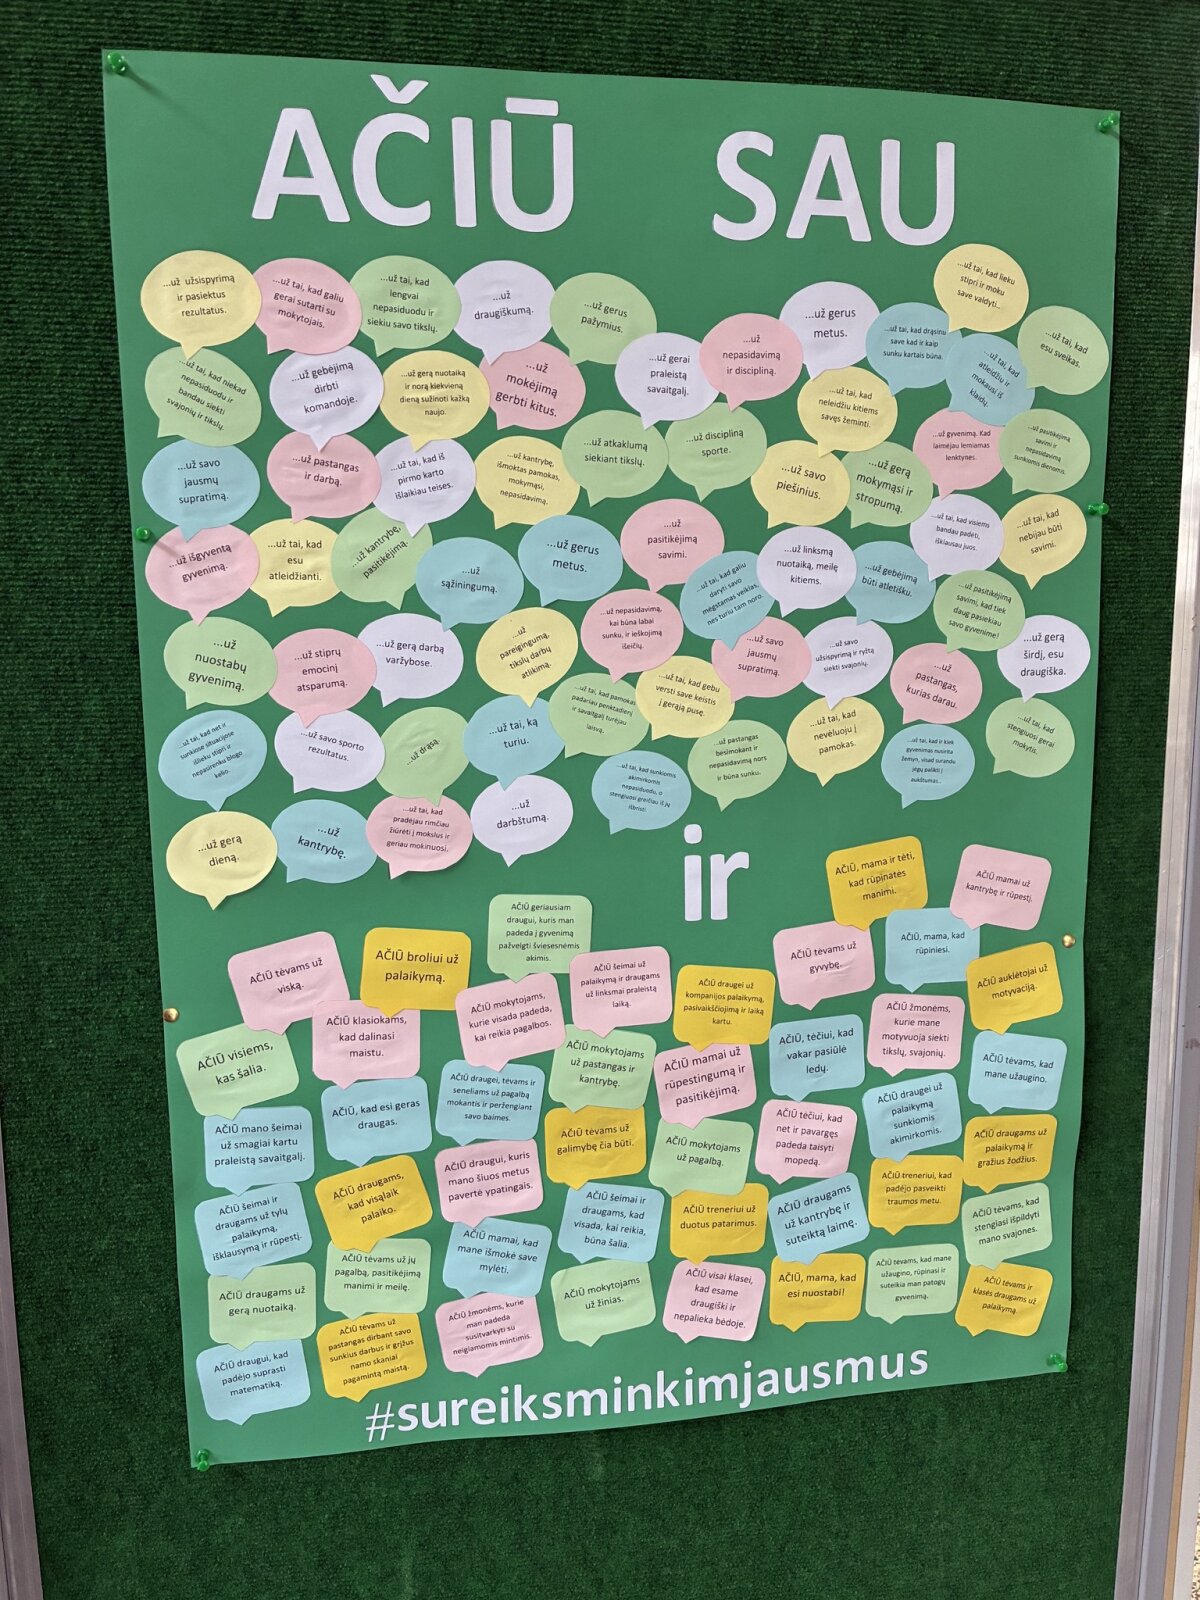 AČIŪ SAU
...už užsispyrimą
ir pasiektus
rezultatus.
...už tai, kad galiu
gerai sutarti su
mokytojais.
...už tai, kad
lengvai
nepasiduodu ir
siekiu savo tikslų.
...už
draugiškumą.
...už gerus
pažymius.
...už gerai
praleistą
savaitgalį.
...už
nepasidavimą
ir discipliną.
...už gerus
metus.
...už tai, kad drąsinu
save kad ir kaip
sunku kartais būna.
...už tai, kad lieku
stipri ir moku
save valdyti..
...už tai, kad
atleidžiu ir
mokausi iš
klaidų.
...už tai, kad
esu sveikas.
...už tai, kad niekad
nepasiduodu ir
bandau siekti
svajonių ir tikslų.
...už gebėjimą
dirbti
komandoje.
...už gerą nuotaiką
ir norą kiekvieną
dieną sužinoti kažką
naujo.
...už
mokėjimą
gerbti kitus.
...už atkaklumą
siekiant tikslų.
...už discipliną
sporte.
...už tai, kad
neleidžiu kitiems
savęs žeminti.
...už gyvenimą. Kad
laimėjau lemiamas
lenktynes.
...už pasitikėjimą
savimi ir
nepasidavimą
sunkiomis dienomis.
...už savo
jausmų
supratimą.
...už pastangas
ir darbą.
...už tai, kad iš
pirmo karto
išlaikiau teises.
...už kantrybę,
išmoktas pamokas,
mokymąsi,
nepasidavimą.
...už savo
piešinius.
...už gerą
mokymąsi ir
stropumą.
...už tai, kad visiems
bandau padėti,
iškiausau juos.
...už tai, kad
nebijau būti
savimi.
...už išgyventą
gyvenimą.
...už tai, kad
esu
atleidžianti.
...už kantrybę,
pasitikėjimą.
...už
sąžiningumą.
...už gerus
metus.
...už
pasitikėjimą
savimi.
...už tai, kad galiu
daryti savo
mėgstamas veiklas,
nes turiu tam noro.
...už linksmą
nuotaiką, meilę
kitiems.
...už gebėjimą
būti atletišku.
...už pasitikėjimą
savimi, kad tiek
daug pasiekiau
savo gyvenime!
...už
nuostabų
gyvenimą.
...už stiprų
emocinį
atsparumą.
...už gerą darbą
varžybose.
...už
pareigingumą,
tikslų darbų
atlikimą.
...už nepasidavimą,
kai būna labai
sunku, ir ieškojimą
išeičių.
...už savo
jausmų
supratimą.
...už savo
užsispyrimą ir ryžtą
siekti svajonių.
...už
pastangas,
kurias darau.
...už gerą
širdį, esu
draugiška.
...už tai, kad net ir
sunkiose situacijose
išlieku stipri ir
nepasirenku blogo
kelio.
...už savo sporto
rezultatus.
...už drąsą.
...už tai, ką
turiu.
...už tai, kad pamokas
padariau penktadienį
ir savaitgalį turėjau
laisvą.
...už tai, kad gebu
versti save keistis
į gerąją pusę.
...už pastangas
besimokant ir
nepasidavimą nors
ir būna sunku.
...už tai, kad
nevėluoju į
pamokas.
...už tai, kad ir kiek
gyvenimas nusirita
žemyn, visad surandu
jėgų palikti į
aukštumas..
...už tai, kad
stengiuosi gerai
mokytis.
...už gerą
dieną.
...už
kantrybę.
...už tai, kad
pradėjau rimčiau
žiūrėti į mokslus ir
geriau mokinuosi.
...už
darbštumą.
...už tai, kad sunkiomis
akimirkomis
nepasiduodu, o
stengiuosi greičiau iš jų
išbristi.
ir
AČIŪ tėvams už
viską.
AČIŪ broliui už
palaikymą.
AČIŪ geriausiam
draugui, kuris man
padeda į gyvenimą
pažvelgti šviesesnėmis
akimis.
AČIŪ šeimai už
palaikymą ir draugams
už linksmai praleistą
laiką.
AČIŪ draugei už
kompanijos palaikymą,
pasivaikščiojimą ir laiką
kartu.
AČIŪ tėvams už
gyvybę.
AČIŪ, mama ir tėti,
kad rūpinatės
manimi.
AČIŪ, mama, kad
rūpiniesi.
AČIŪ mamai už
kantrybę ir rūpestį.
AČIŪ auklėtojai už
motyvaciją.
AČIŪ visiems,
kas šalia.
AČIŪ klasiokams,
kad dalinasi
maistu.
AČIŪ mokytojams,
kurie visada padeda,
kai reikia pagalbos.
AČIŪ mokytojams
už pastangas ir
kantrybę.
AČIŪ mamai už
rūpestingumą ir
pasitikėjimą.
AČIŪ, tėčiui, kad
vakar pasiūlė
ledų.
AČIŪ žmonėms,
kurie mane
motyvuoja siekti
tikslų, svajonių.
AČIŪ tėvams, kad
mane užaugino.
AČIŪ mano šeimai
už smagiai kartu
praleistą savaitgalį.
AČIŪ, kad esi geras
draugas.
AČIŪ draugei, tėvams ir
seneliams už pagalbą
mokantis ir peržengiant
savo baimes.
AČIŪ tėvams už
galimybę čia būti.
AČIŪ mokytojams
už pagalbą.
AČIŪ tėčiui, kad
net ir pavargęs
padeda taisyti
mopedą.
AČIŪ draugei už
palaikymą
sunkiomis
akimirkomis.
AČIŪ draugams už
palaikymą ir
gražius žodžius.
AČIŪ šeimai ir
draugams už tylų
palaikymą,
išklausymą ir rūpestį.
AČIŪ draugams,
kad visąlaik
palaiko.
AČIŪ draugui, kuris
mano šiuos metus
pavertė ypatingais.
AČIŪ šeimai ir
draugams, kad
visada, kai reikia,
būna šalia.
AČIŪ treneriui už
duotus patarimus.
AČIŪ draugams
už kantrybę ir
suteiktą laimę.
AČIŪ treneriui, kad
padėjo pasveikti
traumos metu.
AČIŪ tėvams, kad
stengiasi išpildyti
mano svajones.
AČIŪ draugams už
gerą nuotaiką.
AČIŪ tėvams už jų
pagalbą, pasitikėjimą
manimi ir meilę.
AČIŪ mamai, kad
mane išmokė save
mylėti.
AČIŪ mokytojams
už žinias.
AČIŪ visai klasei,
kad esame
draugiški ir
nepalieka bėdoje.
AČIŪ, mama, kad
esi nuostabi!
AČIŪ tėvams, kad mane
užaugino, rūpinasi ir
suteikia man patogų
gyvenimą.
AČIŪ tėvams ir
klasės draugams už
palaikymą.
AČIŪ draugui, kad
padėjo suprasti
matematiką.
AČIŪ tėvams už
pastangas dirbant savo
sunkius darbus ir grįžus
namo skaniai
pagamintą maistą.
AČIŪ žmonėms, kurie
man padeda
susitvarkyti su
neigiamomis mintimis.
#sureiksminkimjausmus